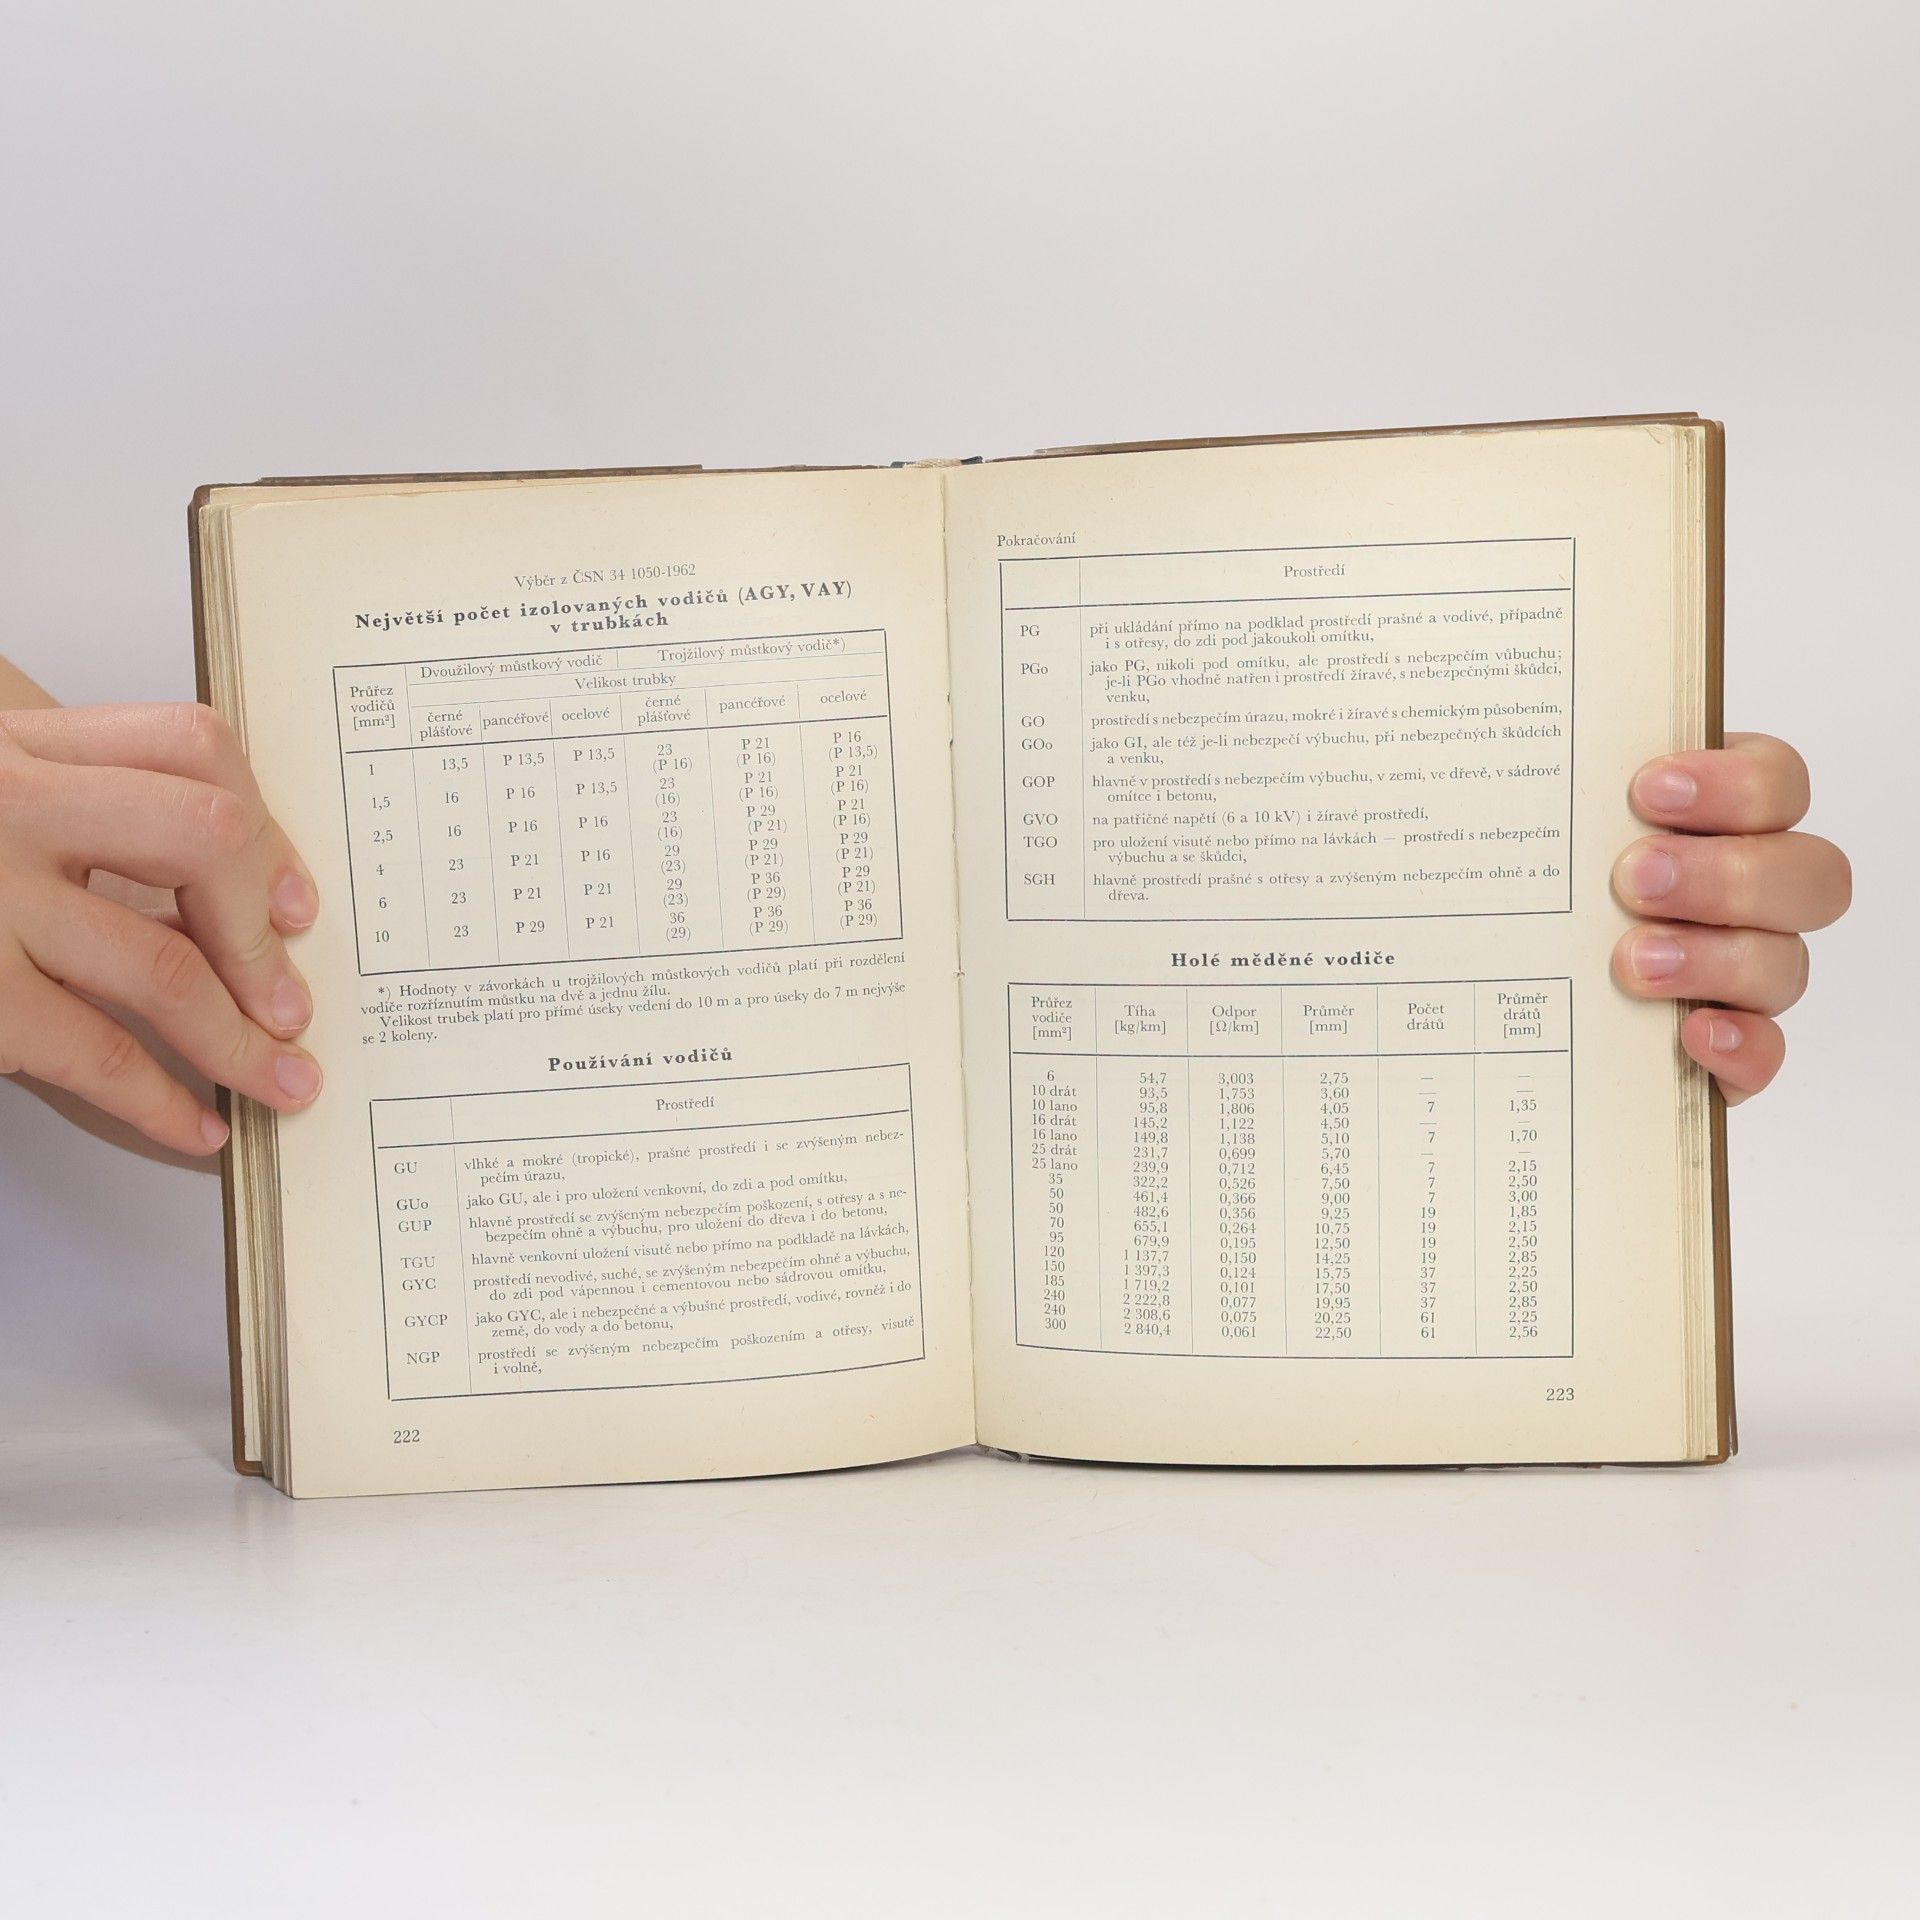 Výběr z ČSN 34 1050-1962
Největší počet izolovaných vodičů (AGY, VAY)
v trubkách
Průřez vodičů [mm²] Dvoužilový můstkový vodič Trojžilový můstkový vodič*)
Velikost trubky
černé plášťové pancéřové ocelové černé plášťové pancéřové ocelové
1 13,5 P 13,5 P 13,5 23 (P 16) P 21 (P 16) P 16 (P 13,5)
1,5 16 P 16 P 13,5 23 (16) P 21 (P 16) P 21 (P 16)
2,5 16 P 16 P 16 23 (16) P 29 (P 21) P 21 (P 16)
4 23 P 21 P 16 29 (23) P 29 (P 21) P 29 (P 21)
6 23 P 21 P 21 29 (23) P 36 (P 29) P 29 (P 21)
10 23 P 29 P 21 36 (29) P 36 (P 29) P 36 (P 29)
*) Hodnoty v závorkách u trojžilových můstkových vodičů platí při rozdělení
vodiče rozříznutím můstku na dvě a jednu žílu.
Velikost trubek platí pro přímé úseky vedení do 10 m a pro úseky do 7 m nejvýše
se 2 koleny.
Používání vodičů
Prostředí
GU vlhké a mokré (tropické), prašné prostředí i se zvýšeným nebez-
pečím úrazu,
GUo jako GU, ale i pro uložení venkovní, do zdi a pod omítku,
GUP hlavně prostředí se zvýšeným nebezpečím poškození, s otřesy a s ne-
bezpečím ohně a výbuchu, pro uložení do dřeva i do betonu,
TGU hlavně venkovní uložení visutě nebo přímo na podkladě na lávkách,
GYC prostředí nevodivé, suché, se zvýšeným nebezpečím ohně a výbuchu,
do zdi pod vápennou i cementovou nebo sádrovou omítku,
GYCP jako GYC, ale i nebezpečné a výbušné prostředí, vodivé, rovněž i do
země, do vody a do betonu,
NGP prostředí se zvýšeným nebezpečím poškozením a otřesy, visutě
i volně,
222
Pokračování
Prostředí
PG při ukládání přímo na podklad prostředí prašné a vodivé, případně
i s otřesy, do zdi pod jakoukoli omítku,
PGo jako PG, nikoli pod omítku, ale prostředí s nebezpečím vůbuchu;
je-li PGo vhodně natřen i prostředí žíravé, s nebezpečnými škůdci,
venku,
GO prostředí s nebezpečím úrazu, mokré i žíravé s chemickým působením,
GOo jako GI, ale též je-li nebezpečí výbuchu, při nebezpečných škůdcích
a venku,
GOP hlavně v prostředí s nebezpečím výbuchu, v zemi, ve dřevě, v sádrové
omítce i betonu,
GVO na patřičné napětí (6 a 10 kV) i žíravé prostředí,
TGO pro uložení visutě nebo přímo na lávkách — prostředí s nebezpečím
výbuchu a se škůdci,
SGH hlavně prostředí prašné s otřesy a zvýšeným nebezpečím ohně a do
dřeva.
Holé měděné vodiče
Průřez vodiče [mm²] Tíha [kg/km] Odpor [Ω/km] Průměr [mm] Počet drátů Průměr drátů [mm]
6 54,7 3,003 2,75 — —
10 drát 93,5 1,753 3,60 — —
10 lano 95,8 1,806 4,05 7 1,35
16 drát 145,2 1,122 4,50 — —
16 lano 149,8 1,138 5,10 7 1,70
25 drát 231,7 0,699 5,70 — —
25 lano 239,9 0,712 6,45 7 2,15
35 322,2 0,526 7,50 7 2,50
50 461,4 0,366 9,00 7 3,00
50 482,6 0,356 9,25 19 1,85
70 655,1 0,264 10,75 19 2,15
95 679,9 0,195 12,50 19 2,50
120 1 137,7 0,150 14,25 19 2,85
150 1 397,3 0,124 15,75 37 2,25
185 1 719,2 0,101 17,50 37 2,50
240 2 222,8 0,077 19,95 37 2,85
240 2 308,6 0,075 20,25 61 2,25
300 2 840,4 0,061 22,50 61 2,56
223